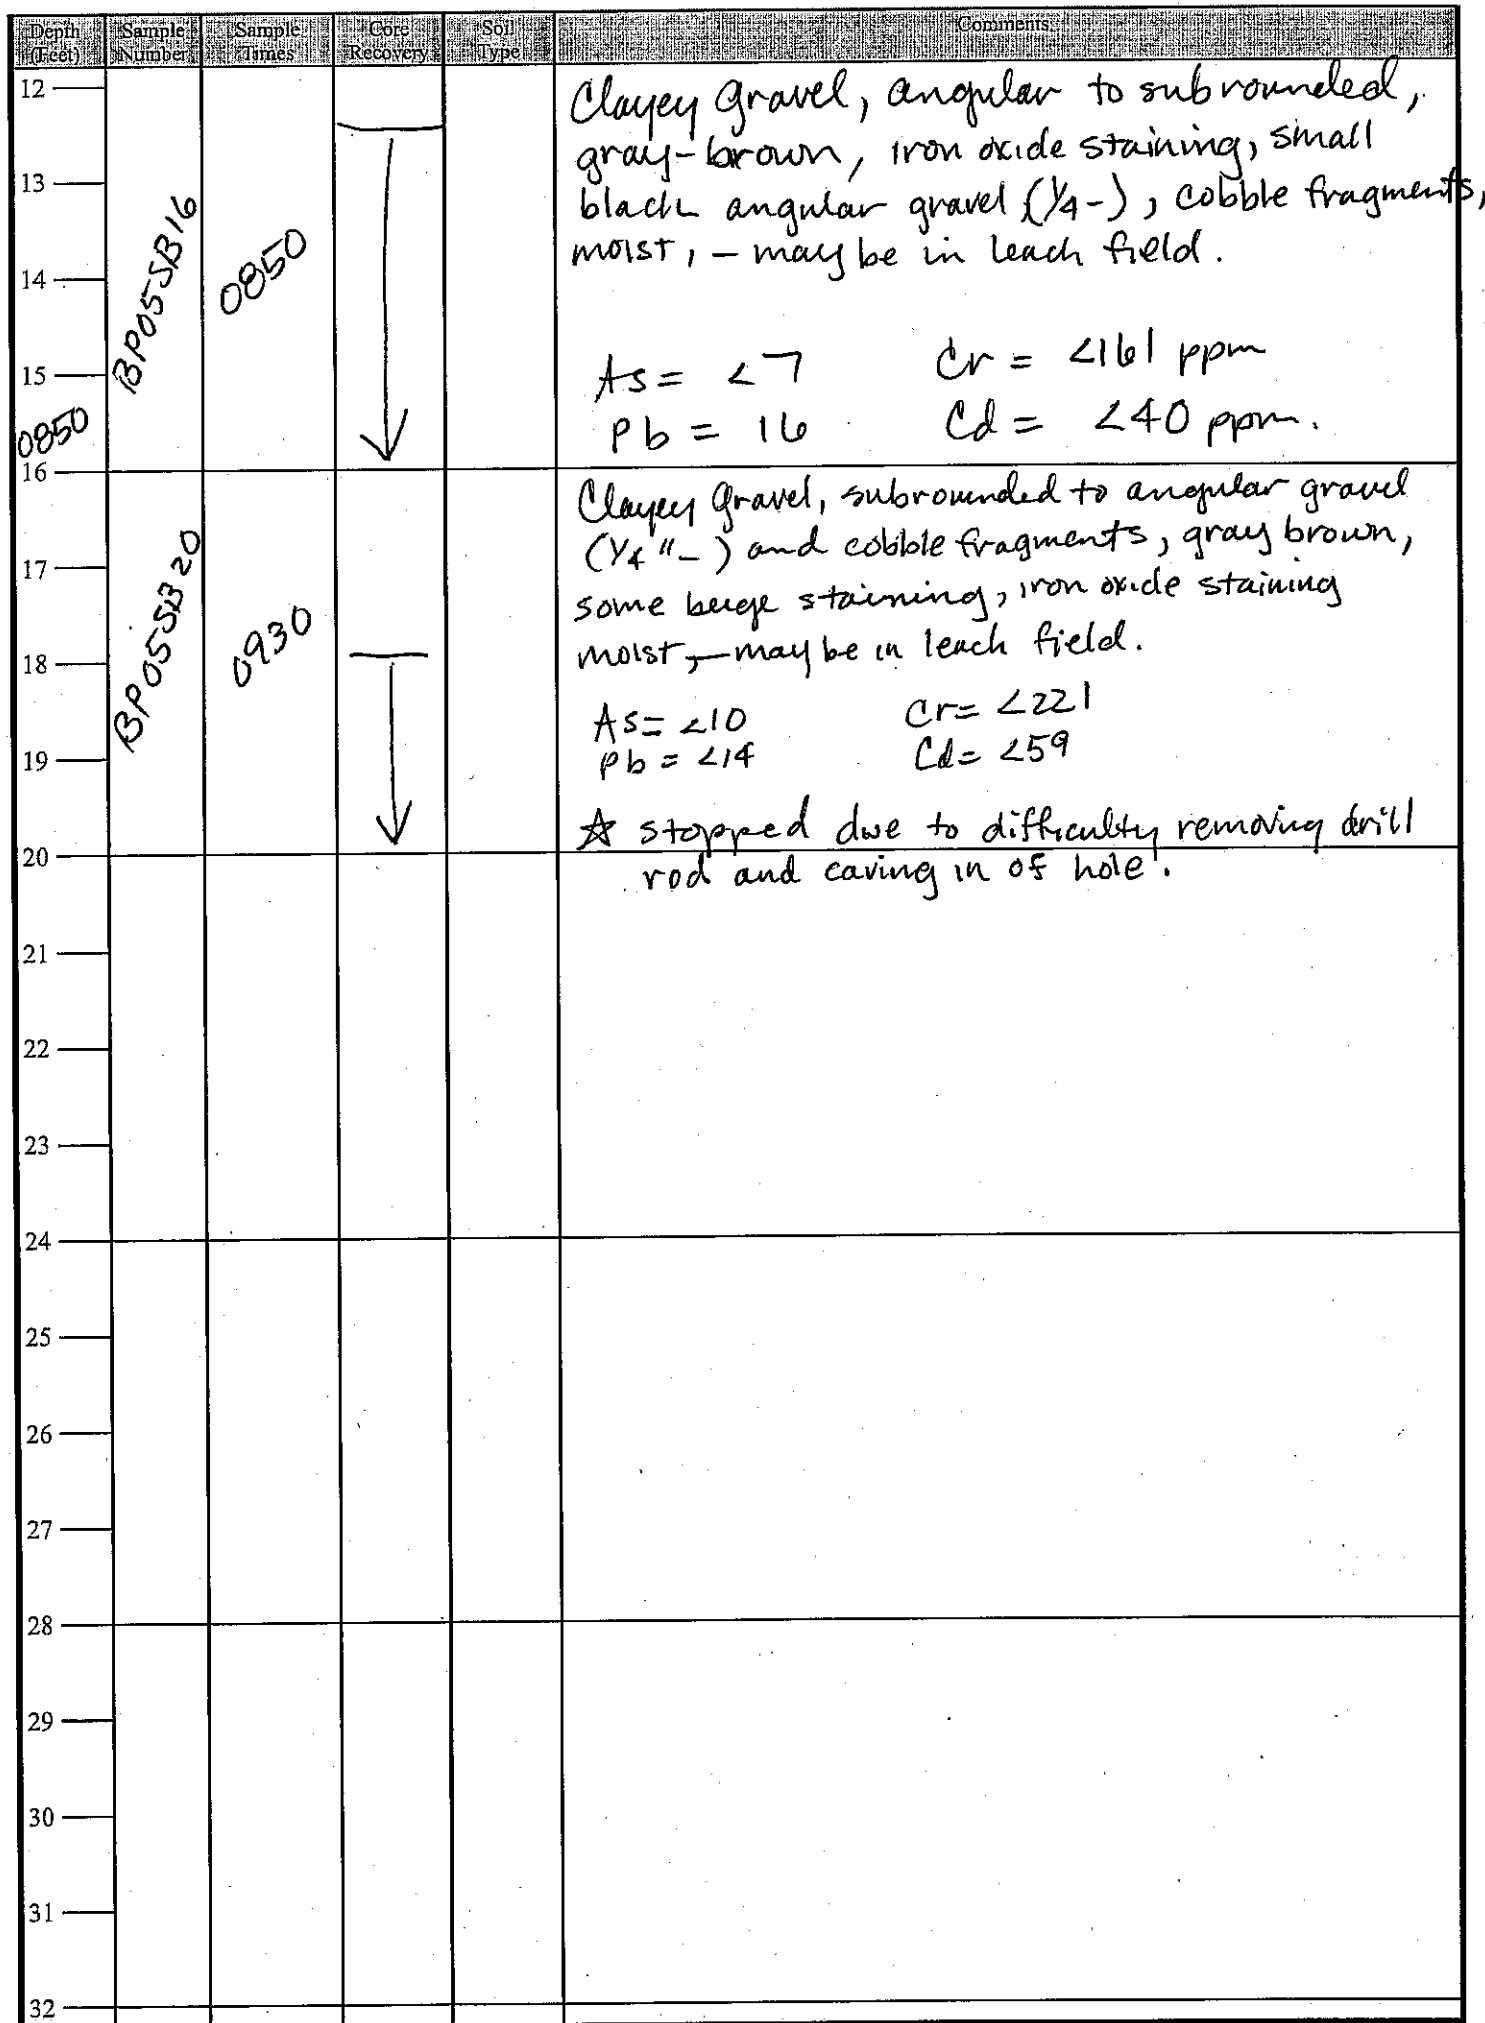 Depth (Feet) Sample Number Sample Times Core Recovery Soil Type Comments
12
Clayey Gravel, angular to subrounded,
gray-brown, iron oxide staining, small
13
black angular gravel (1/4-), cobble fragments,
moist, - may be in leach field.
14
BP05SB16
0850
As = <7 Cr = <161 ppm
15
Pb = 16 Cd = <40 ppm.
0850
16
Clayey Gravel, subrounded to angular gravel
(1/4"-) and cobble fragments, gray brown,
17
some beige staining, iron oxide staining
moist, - may be in leach field.
18
BP05SB20
0930
As = <10 Cr = <221
Pb = <14 Cd = <59
19
☆ stopped due to difficulty removing drill
20
rod and caving in of hole.
21
22
23
24
25
26
27
28
29
30
31
32